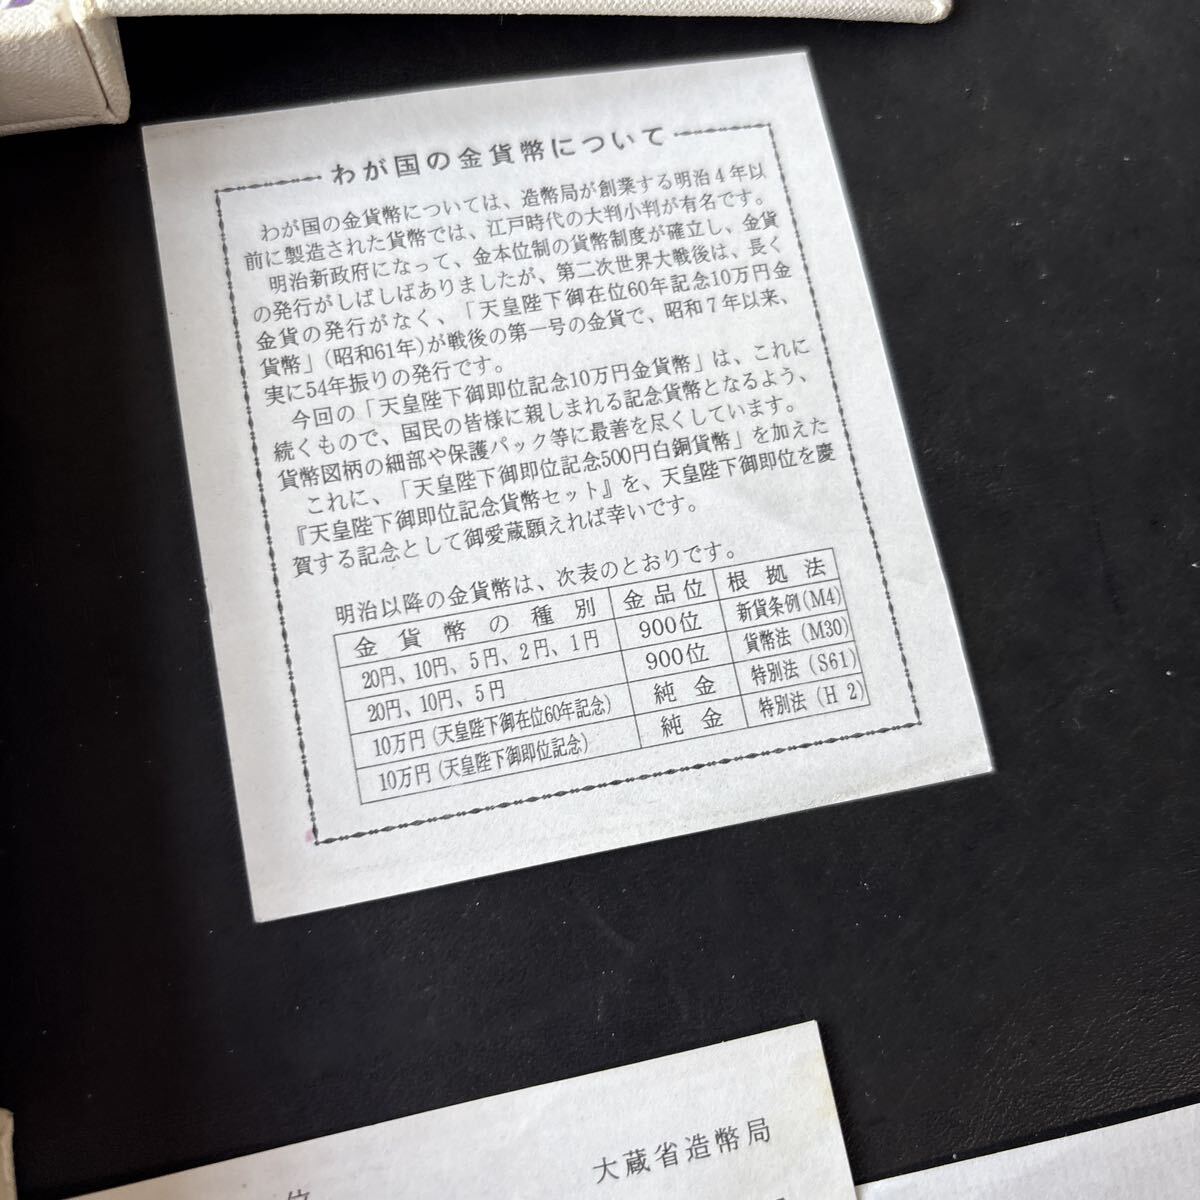 わが国の金貨幣について
わが国の金貨幣については、造幣局が創業する明治4年以
前に製造された貨幣では、江戸時代の大判小判が有名です。
明治新政府になって、金本位制の貨幣制度が確立し、金貨
の発行がしばしばありましたが、第二次世界大戦後は、長く
金貨の発行がなく、「天皇陛下御在位60年記念10万円金
貨幣」(昭和61年)が戦後の第一号の金貨で、昭和7年以来、
実に54年振りの発行です。
今回の「天皇陛下御即位記念10万円金貨幣」は、これに
続くもので、国民の皆様に親しまれる記念貨幣となるよう、
貨幣図柄の細部や保護パック等に最善を尽くしています。
これに、「天皇陛下御即位記念500円白銅貨幣」を加えた
『天皇陛下御即位記念貨幣セット』を、天皇陛下御即位を慶
賀する記念として御愛蔵願えれば幸いです。
明治以降の金貨幣は、次表のとおりです。
金貨幣の種別 金品位 根拠法
20円、10円、5円、2円、1円 900位 新貨条例(M4)
20円、10円、5円 900位 貨幣法(M30)
10万円(天皇陛下御在位60年記念) 純金 特別法(S61)
10万円(天皇陛下御即位記念) 純金 特別法(H2)
大蔵省造幣局
位